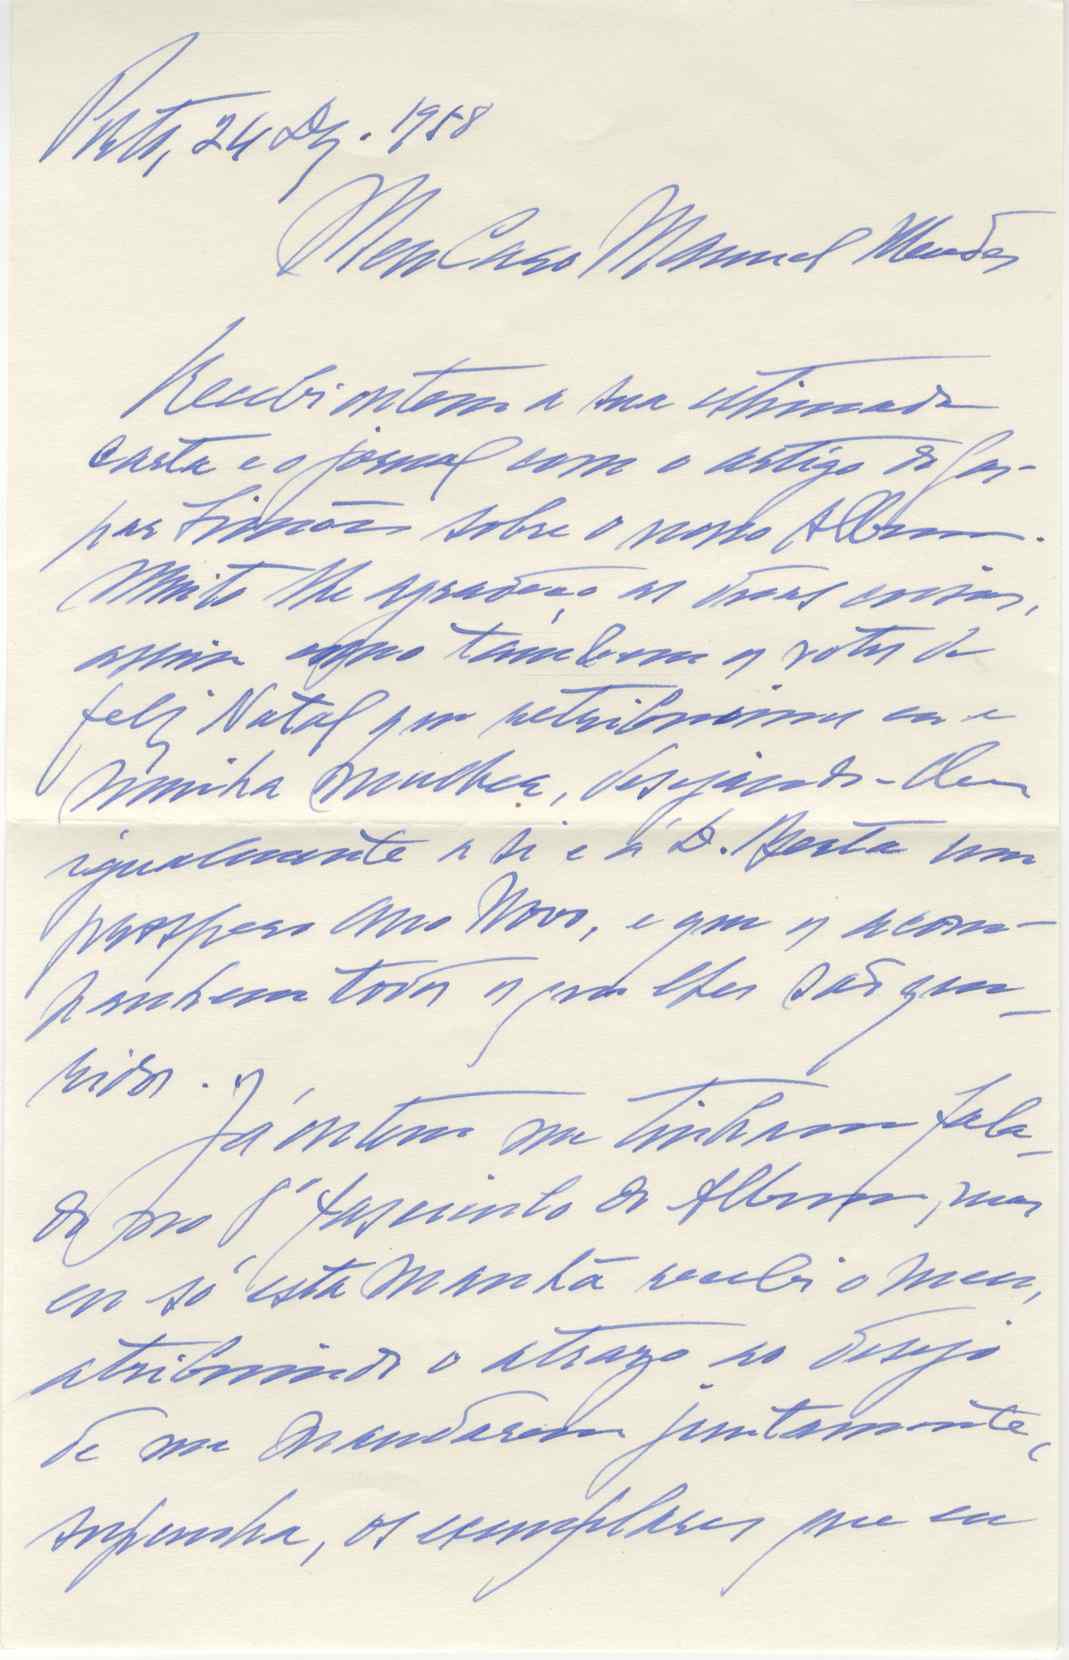 Porto, 24 Dez. 1958
Meu Caro Manuel Mendes
Recebi ontem a sua estimada
carta e o jornal com o artigo do Gas-
par Simões sobre o nosso Album.
Muito lhe agradeço as duas coisas,
assim como tambem os votos de
feliz Natal que retribuimos eu e
minha mulher, desejando-lhes
igualmente a si e á D. Berta um
prospero Ano Novo, e que os acom-
panhem todos os que lhes são que-
ridos.
Já ontem me tinham fala-
do no fasciculo do Album, mas
eu só esta manhã recebi o meu,
atribuindo o atrazo ao desejo
de me mandarem juntamente,
supunha, os exemplares que eu